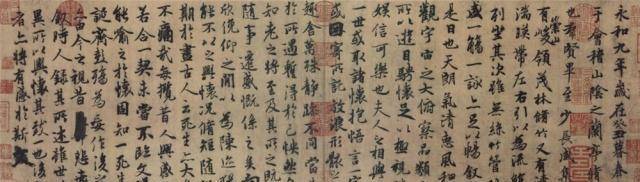 永和九年歲在癸丑暮春
于會稽山陰之蘭亭脩
也羣賢畢至少長咸集
有崇山峻領茂林脩竹又有清
湍暎帶左右引以為流觴
列坐其次雖無絲竹管弦
盛一觴一詠亦足以暢敘
是日也天朗氣清惠風和
觀宇宙之大俯察品類
所以遊目騁懷足以極視
娛信可樂也夫人之相與
一世或取諸懷抱悟言一
或因寄所託放浪形骸之
趣舍萬殊靜躁不同當
於所遇暫得於己怏然自
知老之將至及其所之
隨事遷感慨係之矣向
欣俛仰之間以為陳迹
能不以之興懷況脩短隨
期於盡古人云死生亦大
不痛哉每攬昔人興感
若合一契未嘗不臨文嗟
能喻之於懷固知一死生
誕齊彭殤為妄作後之
今之視昔悲夫
敘時人錄其所述雖世
異所以興懷其致一也後
者亦將有感於斯